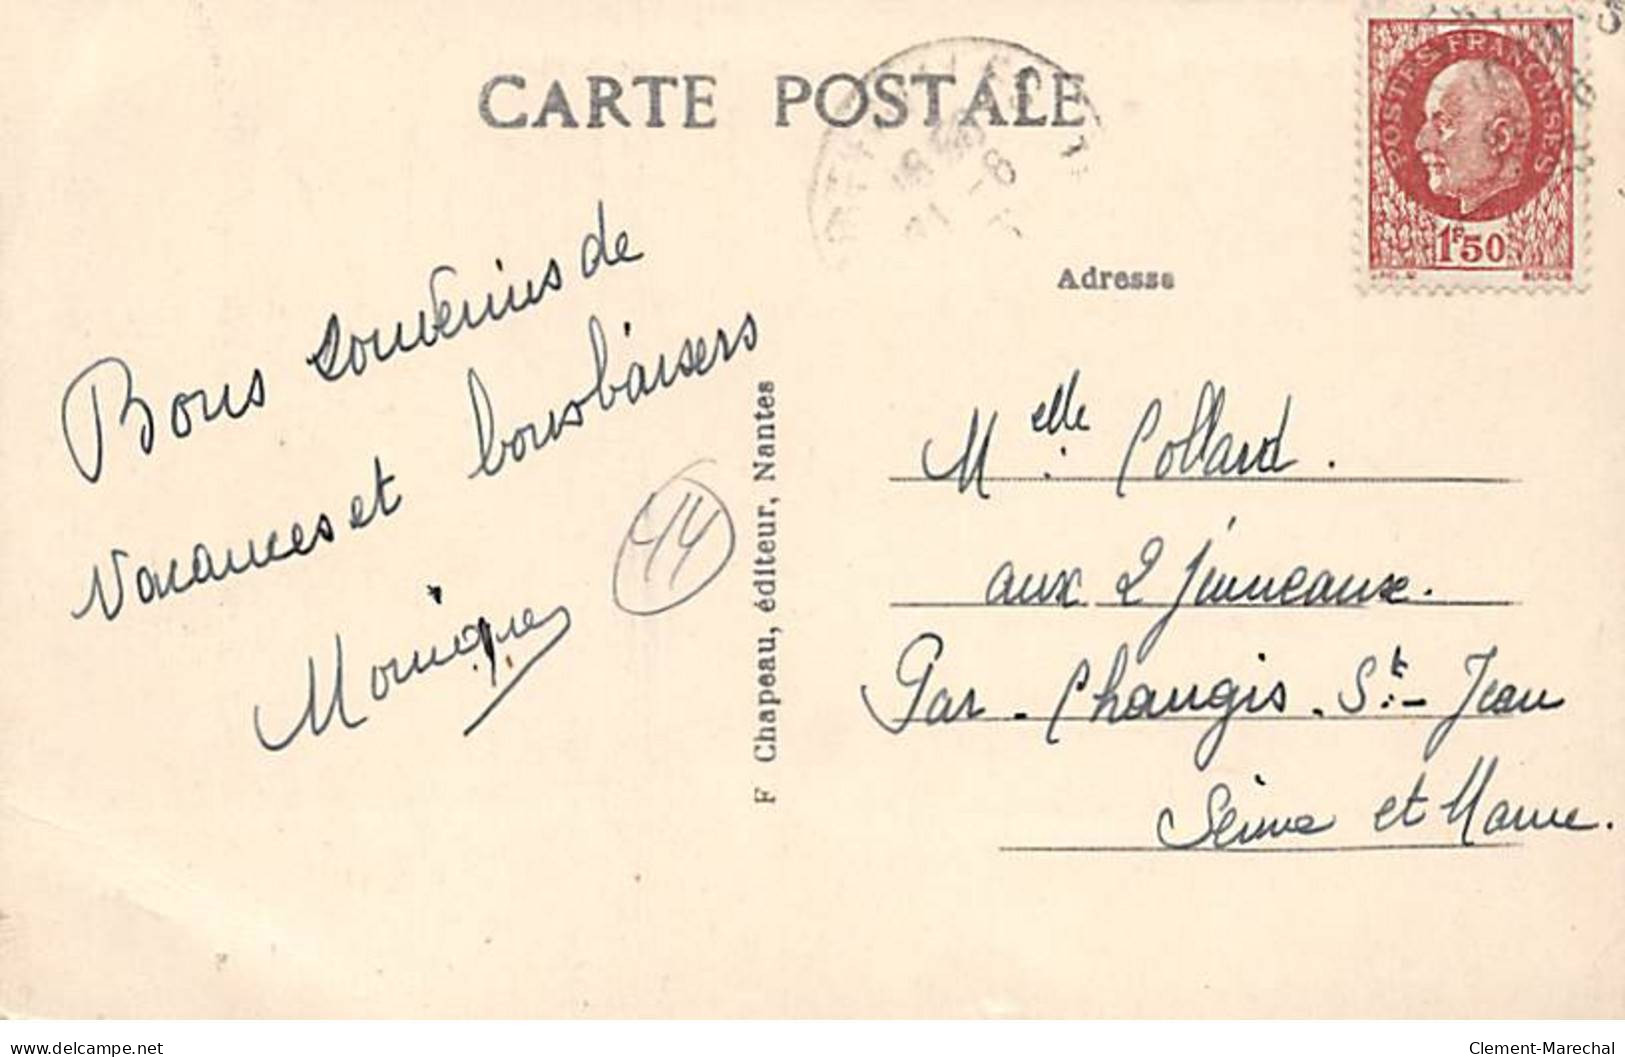 CARTE POSTALE
POSTES FRANÇAISES
1F50
Adresse
Bons souvenirs de
vacances et bons baisers
Monique
44
F Chapeau, éditeur, Nantes
Melle Collard.
aux 2 jumeaux.
Par - Changis - St - Jean
Seine et Marne.
delcampe.net
Clement-Marechal